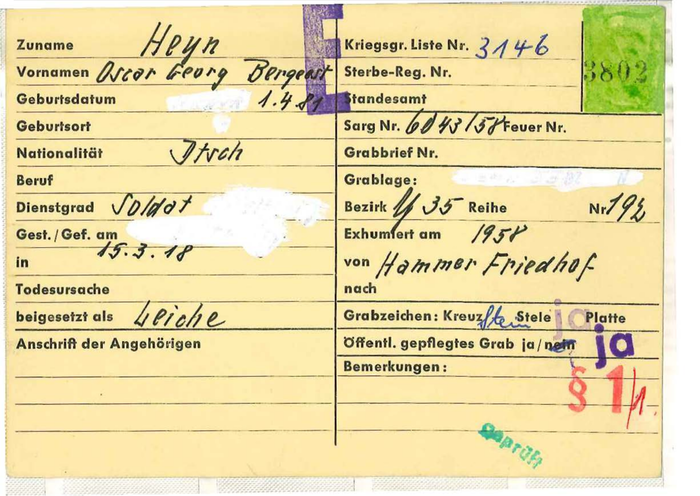 Zuname Heyn
Vornamen Oscar Georg
Geburtsdatum 1.4.81
Geburtsort
Nationalität Dtsch
Beruf
Dienstgrad Soldat
Gest./Gef. am
15.3.18
in
Todesursache
beigesetzt als Leiche
Anschrift der Angehörigen
E
Kriegsgr. Liste Nr. 3146
3802
Sterbe-Reg. Nr.
Standesamt
Sarg Nr. 6043/58 Feuer Nr.
Grabbrief Nr.
Grablage:
Bezirk 35 Reihe Nr. 192
Exhumiert am 1958
von Hammer Friedhof
nach
Grabzeichen: Kreuz Stein Stele Platte
ja
Öffentl. gepflegtes Grab ja/nein ja
Bemerkungen:
§ 1/1.
Geprüft